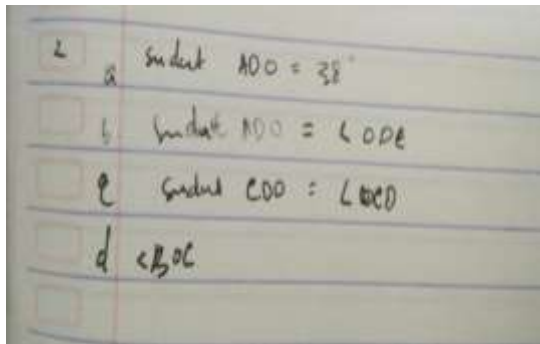 2 a sudut ADO = 38°
b sudut ADO = ∠ODC
c sudut CDO = ∠OCD
d ∠BOC